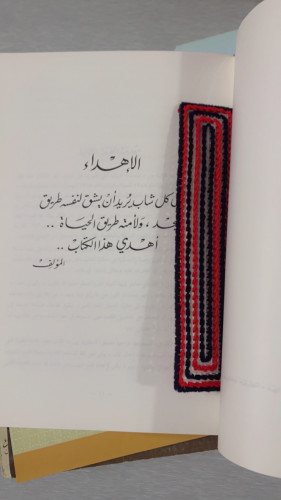 الإهداء
كل شاب يريد أن يشق لنفسه طريق
، ولأمته طريق الحياة ..
أهدي هذا الكتاب ..
المؤلف